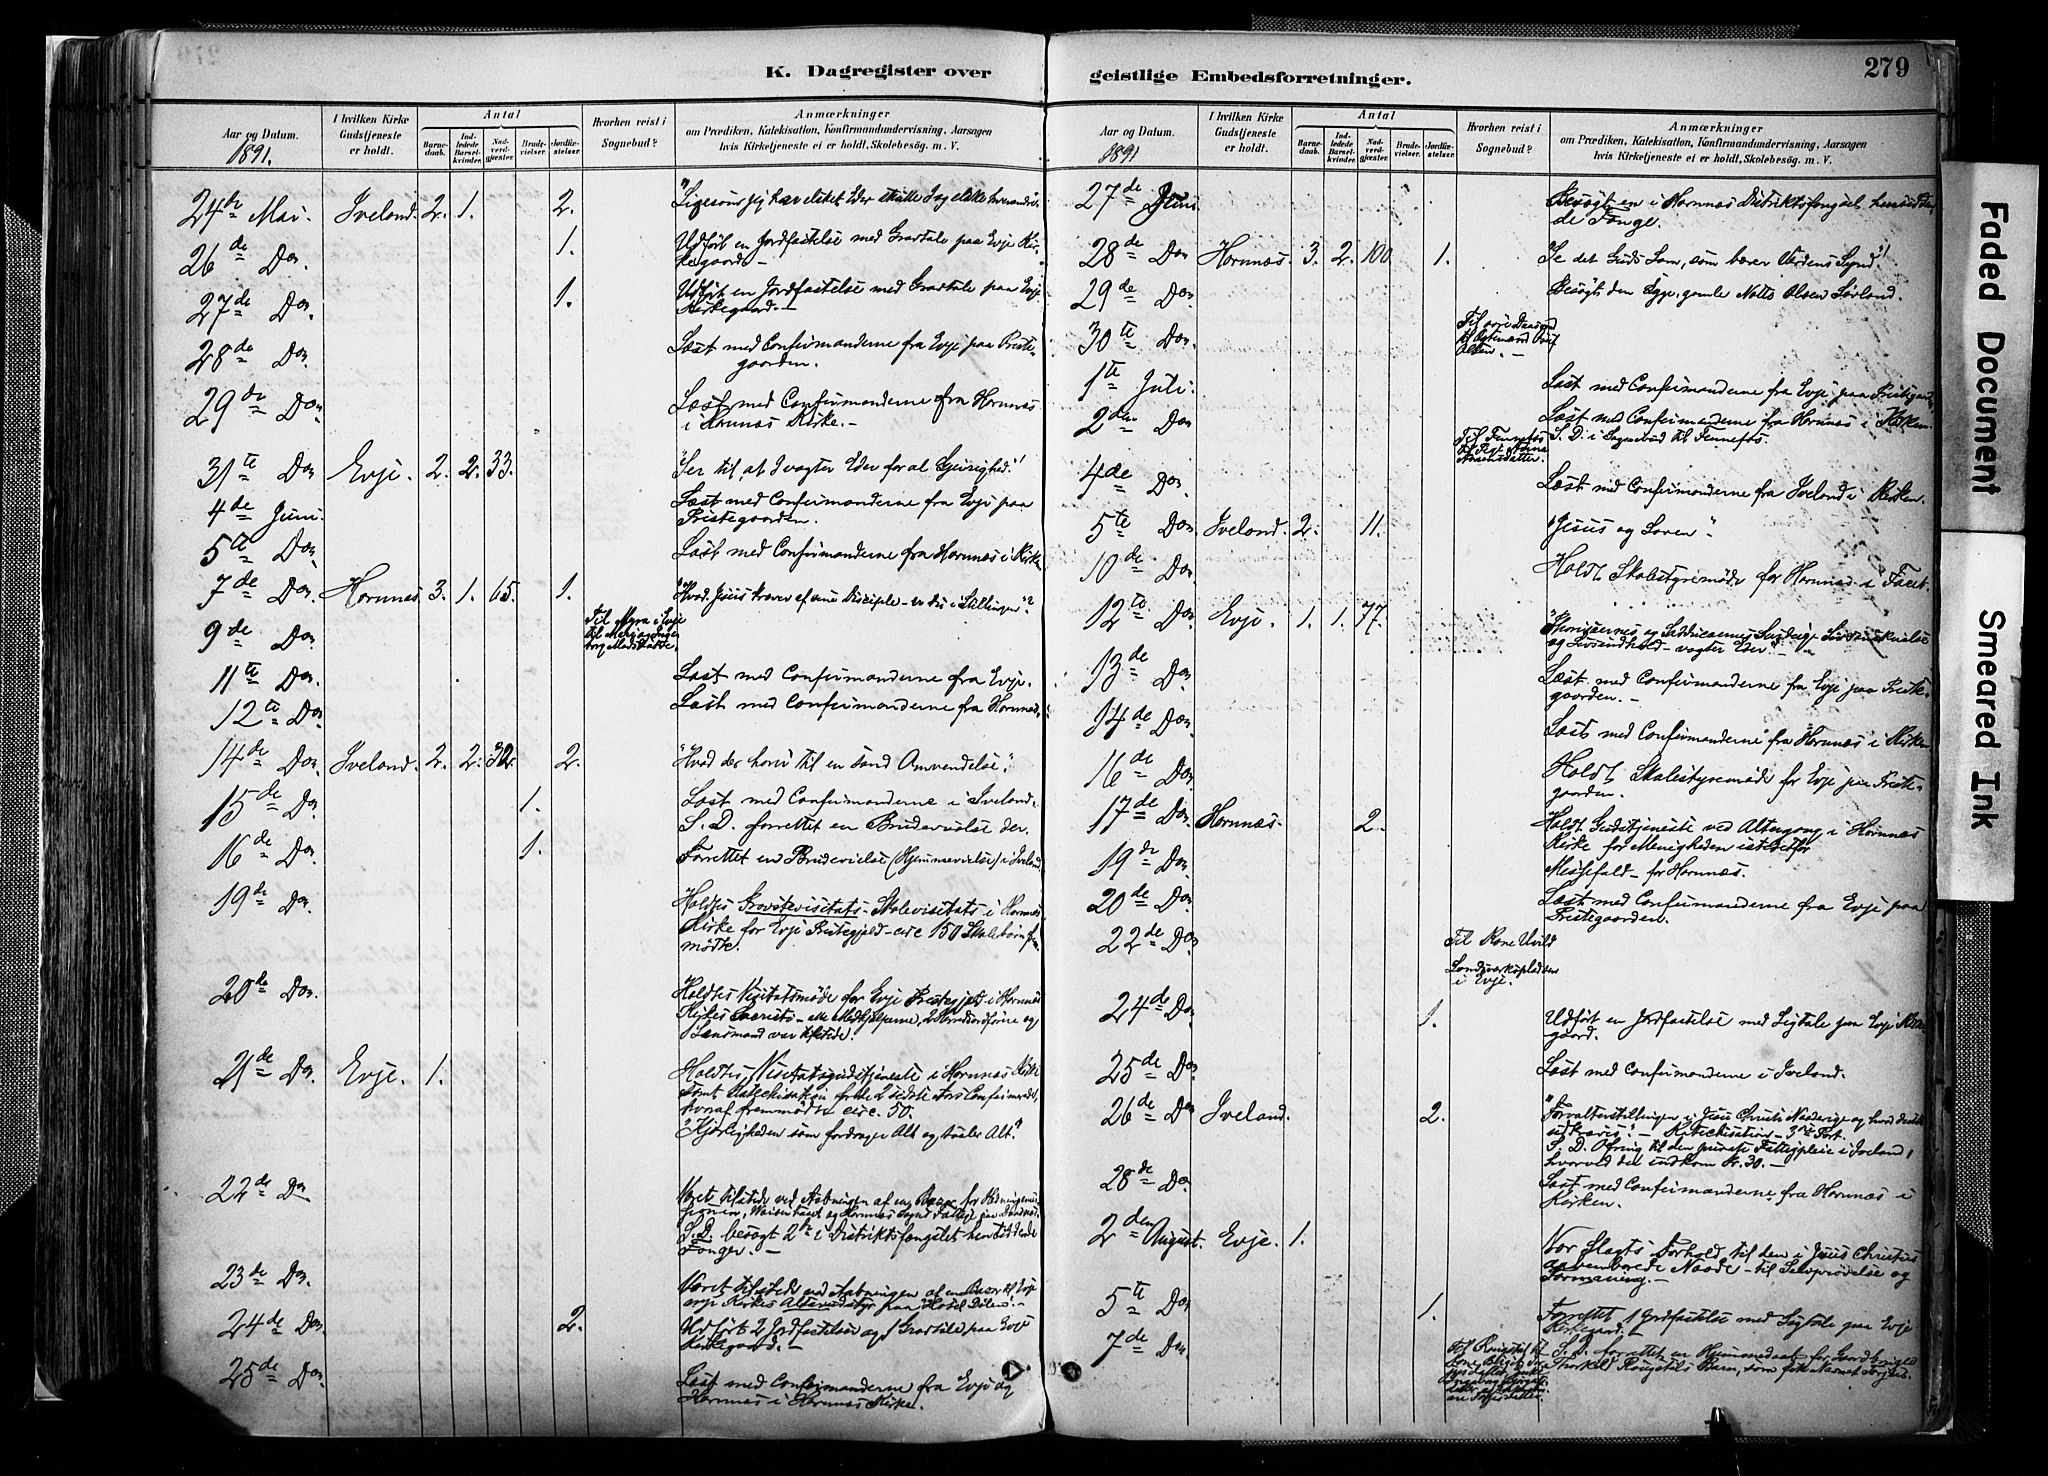 K. Dagregister over
Aar og Datum.
1891.
I hvilken Kirke
Gudstjeneste
er holdt.
Antal
Barne-
daab.
Ind-
ledede
Barsel-
kvinder.
Nad-
verd-
gjester.
Brude-
vielser.
Jordfæ-
stelser.
Hvorhen reist i
Sognebud?
Anmærkninger
om Prædiken, Katekisation, Konfirmandundervisning, Aarsagen
hvis Kirketjeneste ei er holdt, Skolebesøg. m. V.
24de Mai. Iveland. 2. 1. 2. "Ligesom jeg har elsket Eder skulle I og elske hverandre".
26de Do. 1. Udført en Jordfæstelse med Gravtale paa Evje Kir-
kegaard. —
27de Do. 1. Udført en Jordfæstelse med Gravtale paa Evje
Kirkegaard. —
28de Do. Læst med Confirmanderne fra Evje paa Præste-
gaarden.
29de Do. Læst med Confirmanderne fra Hornnæs
i Hornnæs Kirke. —
31te Do. Evje. 2. 2. 33. "Ser til, at I vogter Eder for al Gjerrighed!"
4de Juni. Læst med Confirmanderne fra Evje paa
Præstegaarden.
5te Do. Læst med Confirmanderne fra Hornnæs i Kirken
7de Do. Hornnæs. 3. 1. 65. 1. "Hvad Jesus kræver af sine Disciple
9de Do. Til Myra i Evje
11te Do. Læst med Confirmanderne fra Evje.
12te Do. Læst med Confirmanderne fra Hornnæs.
14de Do. Iveland. 2. 2. 32. 2. "Hvad der hører til en sand Omvendelse".
15de Do. 1. Læst med Confirmanderne i Iveland.
S. D. forrettet en Brudevielse der.
16de Do. 1. Forrettet en Brudevielse (Hjemmevielse) i Iveland
19de Do. Holdtes Provstevisitats-Skolevisitats i Hornnæs
Kirke for Evje Præstegjeld - circ 150 Skolebørn frem-
mødte.
20de Do. Holdtes Visitatsmøde for Evje Præstegjeld i Hornnæs
Kirkes Sacristi - Medhjelperne, 2 Herredsordførere og
1 Lensmand var tilstede.
21de Do. Evje. 1. Holdtes Visitatsgudstjeneste i Hornnæs Kirke
samt Katechisation for de 2 sidste Aars Confirmerede,
hvoraf fremmødte circ. 50.
"Kjærligheden som fordrager Alt og taaler Alt."
22de Do Været tilstede ved Aabningen af en Bazar for
S. D. besøgt 2de i Distriktsfængslet hensiddende
Fanger. —
23de Do. Været tilstede ved Aabningen af en Bazar til Evje
Kirkes Alterudstyr paa "Hotel Dølen". —
24de Do. 2. Udført 2 Jordfæstelser og 1 Gravtale paa Evje
Kirkegaard. —
25de Do. Læst med Confirmanderne fra Evje og
Hornnæs i Hornnæs Kirke.
geistlige Embedsforretninger.
279
Aar og Datum.
1891
I hvilken Kirke
Gudstjeneste
er holdt.
Antal
Barne-
daab.
Ind-
ledede
Barsel-
kvinder.
Nad-
verd-
gjester.
Brude-
vielser.
Jordfæ-
stelser.
Hvorhen reist i
Sognebud?
Anmærkninger
om Prædiken, Katekisation, Konfirmandundervisning, Aarsagen
hvis Kirketjeneste ei er holdt, Skolebesøg. m. V.
27de Juni. Besøgt en i Hornnæs Distriktsfængsel hensidden-
de Fange.
28de Do Hornnæs. 3. 2. 100. 1. "Se det Guds Lam, som bærer Verdens Synd!"
29de Do. Besøgt den syge, gamle Olsen
30te Do.
1te Juli. Læst med Confirmanderne fra Evje paa Præstegaarden
2den Do Læst med Confirmanderne fra Hornnæs i Kirken.
S. D. i Sognebud til Fennefos.
4de Do. Læst med Confirmanderne fra Iveland i Kirken.
5te Do. Iveland. 2. 11. "Jesus og Loven".
10de Do. Holdt Skolestyremøde for Hornnæs i Faret.
12te Do. Evje. 1. 1. 77. "Pharisæernes og Sadducæernes Surdeig
vogter Eder". —
13de Do. Læst med Confirmanderne fra Evje paa Præste-
gaarden. —
14de Do. Læst med Confirmanderne fra Hornnæs i Kirken
16de Do. Holdt Skolestyremøde for Evje paa Præste-
gaarden.
17de Do. Hornnæs. 2. Holdt Gudstjeneste ved Altergang i Hornnæs
Kirke for Menigheden istedetfor
19de Do. Messefald - for Hornnæs.
20de Do. Læst med Confirmanderne fra Evje paa
Præstegaarden.
22de Do Til
i Evje.
24de Do. 1. Udført en Jordfæstelse med Ligtale paa Evje Kirke-
gaard.
25de Do. Læst med Confirmanderne i Iveland.
26de Do Iveland. 2. "Forvalterstillingen i Jesu Christi Naaderige og hvad den
udkræver". — Katechisation - 3die Part.
S. D. Ofring til den private Fattigpleie i Iveland,
hvorved der indkom Kr. 30. —
28de Do. Læst med Confirmanderne fra Hornnæs i
Kirken.
2den August. Evje. 1. Vor Slægts Forhold til den i Jesus Christus
aabenbarede Naade - til Selvprøvelse og
Formaning. —
5te Do. 1. Forrettet 1 Jordfæstelse med Ligtale paa Evje
Kirkegaard. —
7de Do. S. D. forrettet en Hjemmedaab for Gaardbruger
Barn, som fik Navnet
Faded Document
Smeared Ink